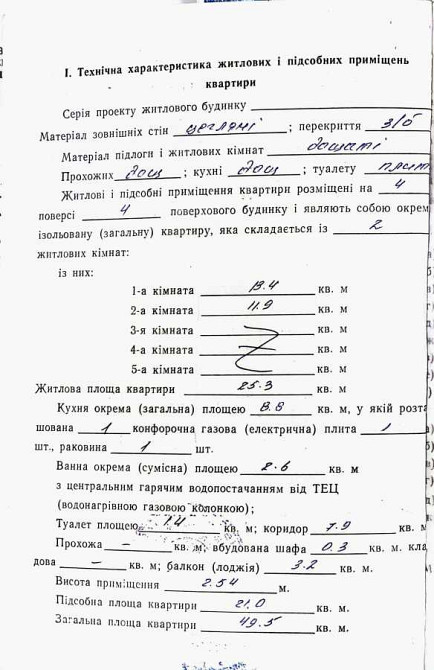 I. Технічна характеристика житлових і підсобних приміщень
квартири
Серія проекту житлового будинку
Матеріал зовнішніх стін цегляні ; перекриття з/б
Матеріал підлоги і житлових кімнат дощаті
Прохожих дощ ; кухні дощ ; туалету
Житлові і підсобні приміщення квартири розміщені на 4
поверсі 4 поверхового будинку і являють собою окрем
ізольовану (загальну) квартиру, яка складається із 2
житлових кімнат:
із них:
1-а кімната 13.4 кв. м
2-а кімната 11.9 кв. м
3-я кімната кв. м
4-а кімната кв. м
5-а кімната кв. м
Житлова площа квартири 25.3 кв. м
Кухня окрема (загальна) площею 8.8 кв. м, у якій розта
шована 1 конфорочна газова (електрична) плита 1
шт., раковина 1 шт.
Ванна окрема (сумісна) площею 2.6 кв. м
з центральним гарячим водопостачанням від ТЕЦ
(водонагрівною газовою колонкою);
Туалет площею 1.4 кв. м; коридор 7.9 кв. м
Прохожа — кв. м; вбудована шафа 0.3 кв. м. кла
дова — кв. м; балкон (лоджія) 3.2 кв. м.
Висота приміщення 2.54 м.
Підсобна площа квартири 21.0 кв. м.
Загальна площа квартири 49.5 кв. м.